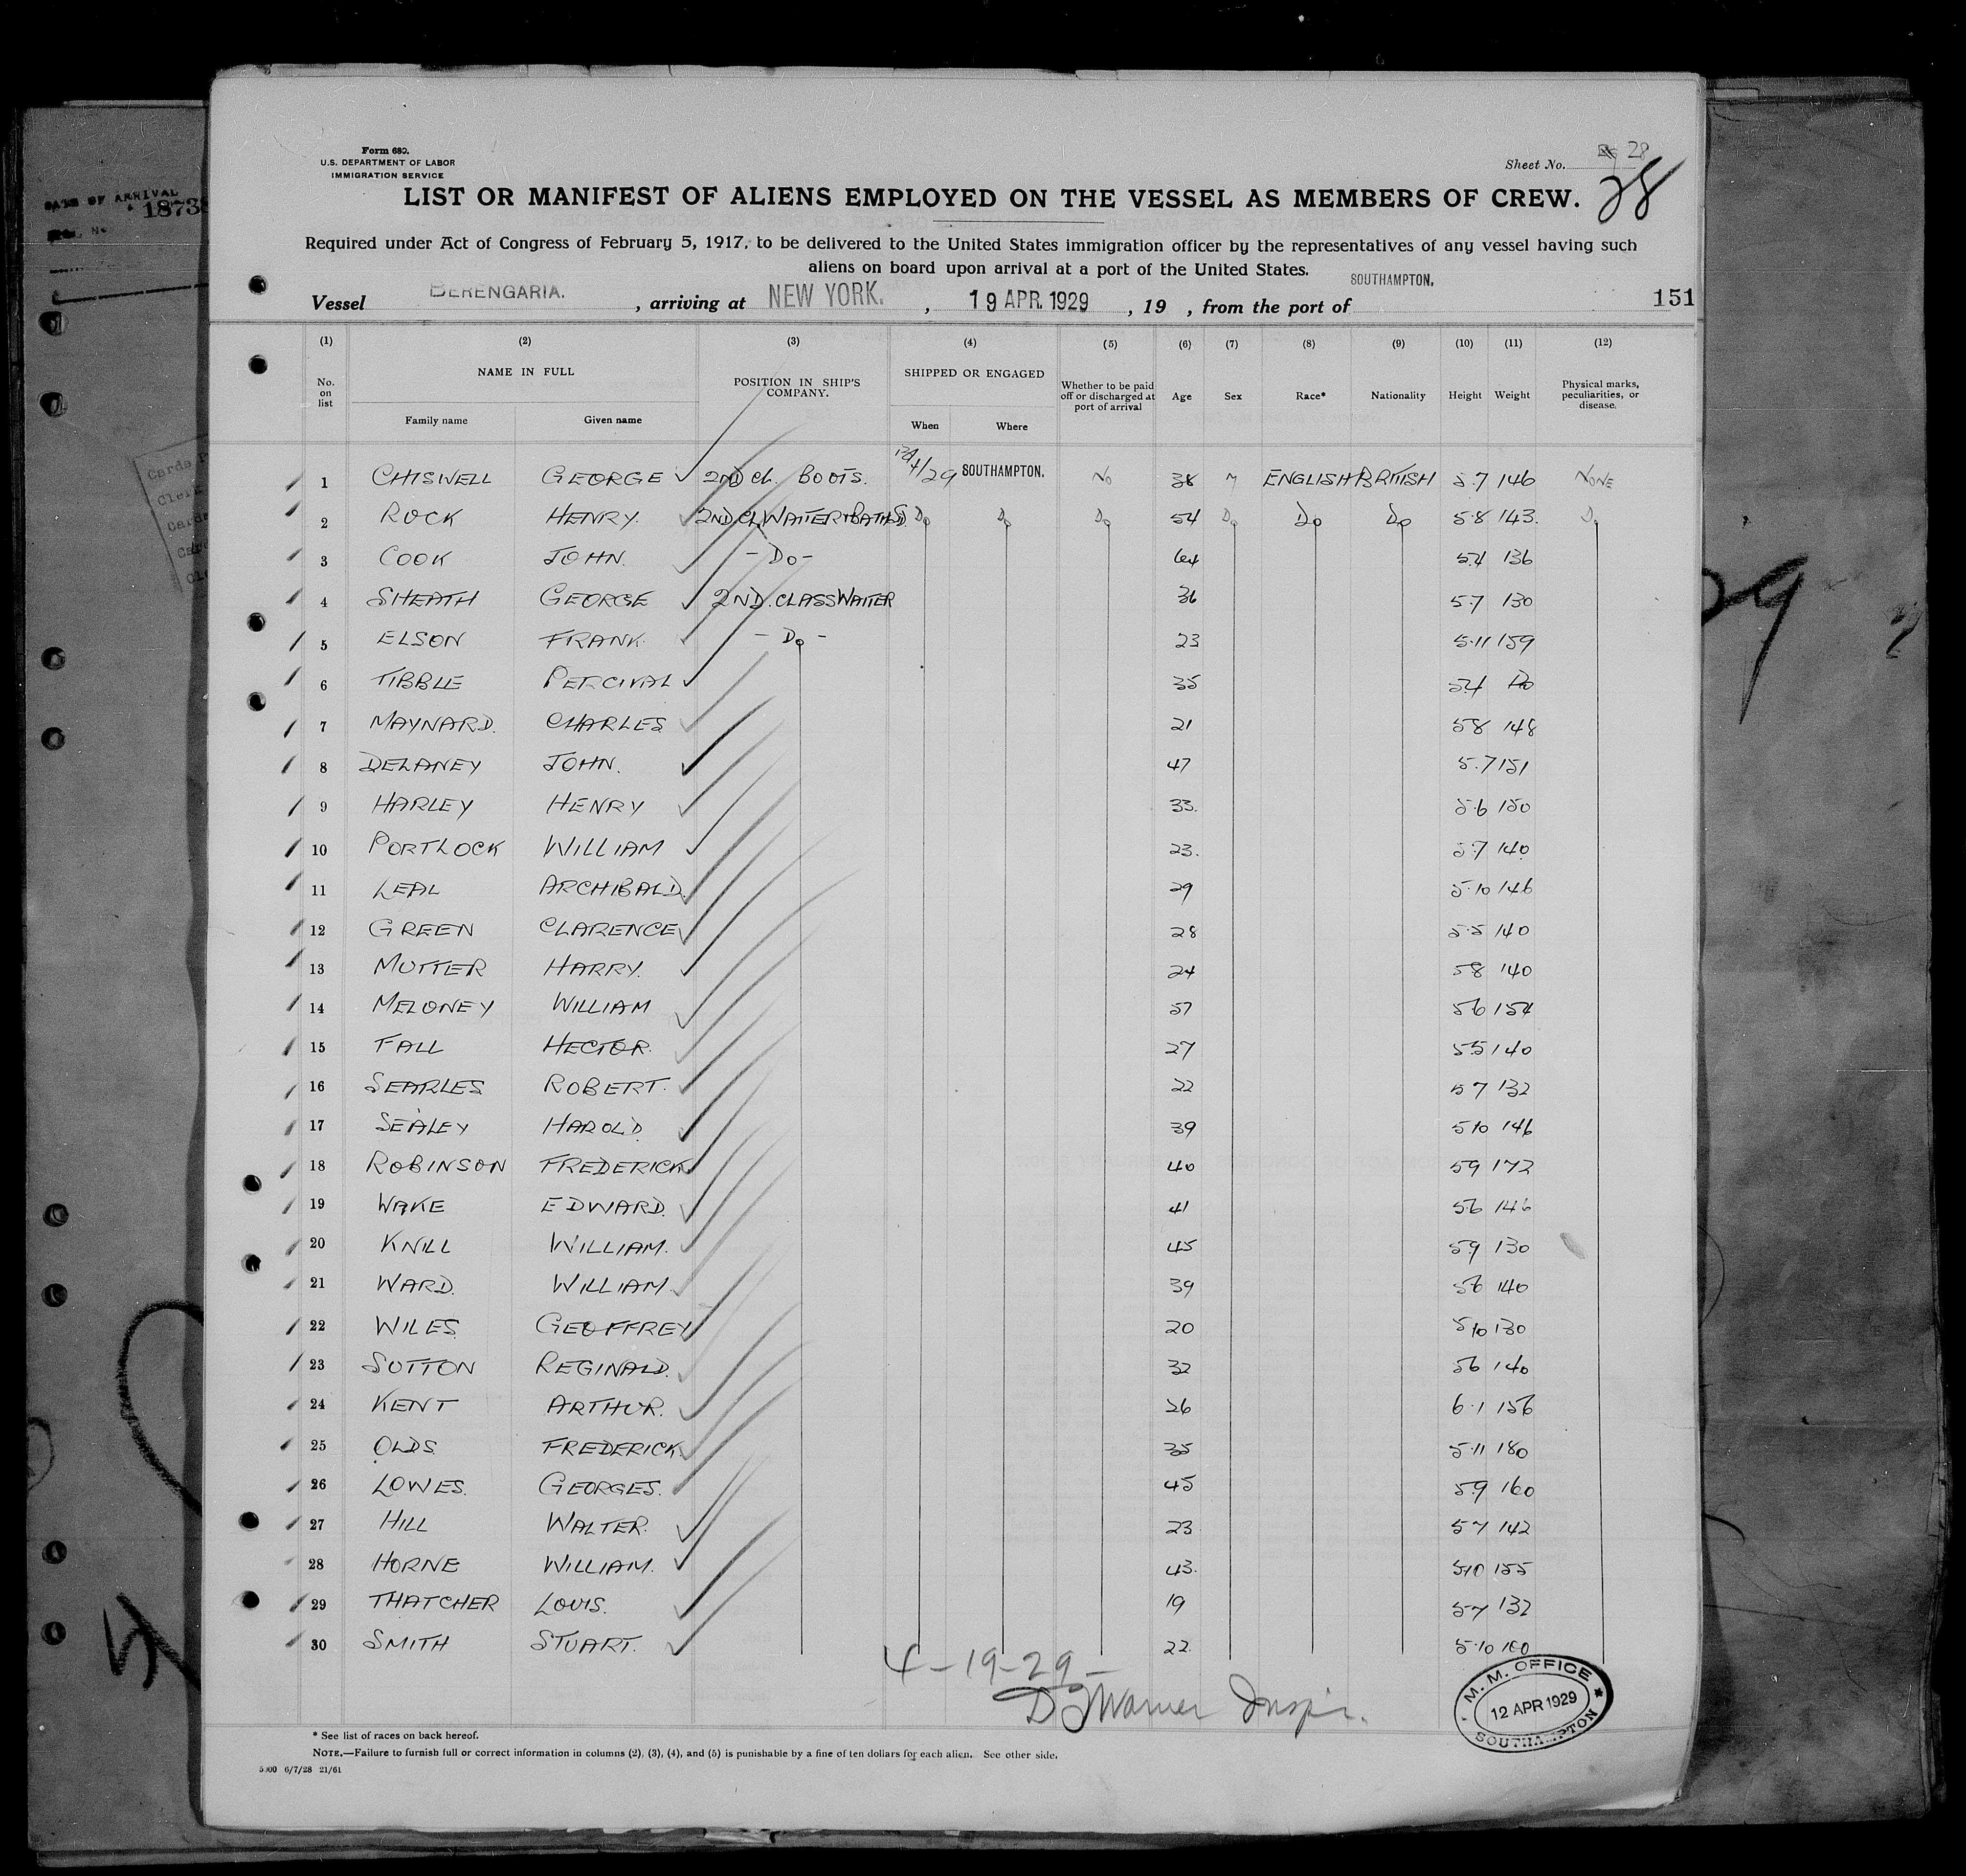 DATE OF ARRIVAL
Form 680.
U.S. DEPARTMENT OF LABOR
IMMIGRATION SERVICE
Sheet No. 28
28
LIST OR MANIFEST OF ALIENS EMPLOYED ON THE VESSEL AS MEMBERS OF CREW.
Required under Act of Congress of February 5, 1917, to be delivered to the United States immigration officer by the representatives of any vessel having such
aliens on board upon arrival at a port of the United States.
Vessel BERENGARIA. , arriving at NEW YORK. , 19 APR. 1929 , 19 , from the port of SOUTHAMPTON. 151
(1) (2) (3) (4) (5) (6) (7) (8) (9) (10) (11) (12)
No. on list NAME IN FULL Family name Given name POSITION IN SHIP'S COMPANY. SHIPPED OR ENGAGED When Where Whether to be paid off or discharged at port of arrival Age Sex Race* Nationality Height Weight Physical marks, peculiarities, or disease.
1 CHISWELL GEORGE 2ND CL. BOOTS. 4/29 SOUTHAMPTON. No 38 M ENGLISH BRITISH 5.7 146 NONE
2 ROCK HENRY. 2ND CL WAITER + BATHS Do Do Do 54 Do Do Do 5.8 143. Do
3 COOK JOHN. - Do - 64 5.4 136
4 SHEATH GEORGE 2ND. CLASS WAITER 36 5.7 130
5 ELSON FRANK. - Do - 23 5.11 159
6 TIBBLE PERCIVAL 35 5.4
7 MAYNARD. CHARLES 21 5 8 148
8 DELANEY JOHN. 47 5.7 151
9 HARLEY HENRY 33. 5.6 150
10 PORTLOCK WILLIAM 23. 5.7 140
11 LEAL ARCHIBALD. 29 5.10 146
12 GREEN CLARENCE 28 5.5 140
13 MUTTER HARRY. 24 5 8 140
14 MELONEY WILLIAM 57 5 6 154
15 FALL HECTOR. 27 5 5 140
16 SEARLES ROBERT. 22 5 7 132
17 SEALEY HAROLD. 39 5 10 146
18 ROBINSON FREDERICK 40 5 9 172
19 WAKE EDWARD. 41 5.6 146
20 KNILL WILLIAM. 45 5 9 130
21 WARD. WILLIAM. 39 5 6 140
22 WILES. GEOFFREY 20 5 10 130
23 SUTTON REGINALD. 32 5 6 140
24 KENT ARTHUR. 26 6.1 156
25 OLDS. FREDERICK. 35 5.11 180
26 LOWES. GEORGES. 45 5.9 160
27 HILL WALTER. 23 5 7 142
28 HORNE WILLIAM. 43. 5.10 155
29 THATCHER LOUIS. 19 5.7 132
30 SMITH STUART. 22. 5.10 160
4-19-29-
D J Warner Inspr.
M. M. OFFICE
12 APR 1929
SOUTHAMPTON
* See list of races on back hereof.
NOTE.—Failure to furnish full or correct information in columns (2), (3), (4), and (5) is punishable by a fine of ten dollars for each alien. See other side.
5000 6/7/28 21/61